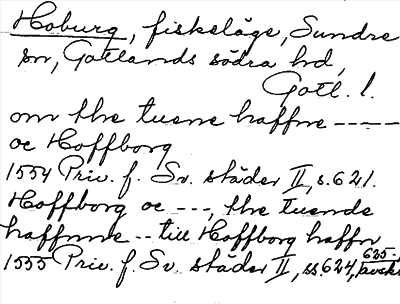 Hoburg, fiskeläge, Sundre
sn, Gotlands södra hd,
Gotl. l.
om the tuene haffne -----
oc Hoffborg
1554 Priv. f. Sv. städer II, s. 621.
Hoffborg oc ---, the tuende
haffnne -- till Hoffborg haffn
1555 Priv. f. Sv. städer II, ss 624, 625.